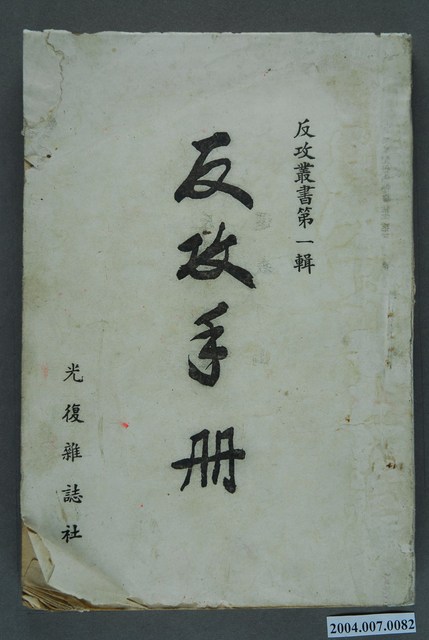 反攻叢書第一輯
反攻手册
光復雜誌社
2004.007.0082